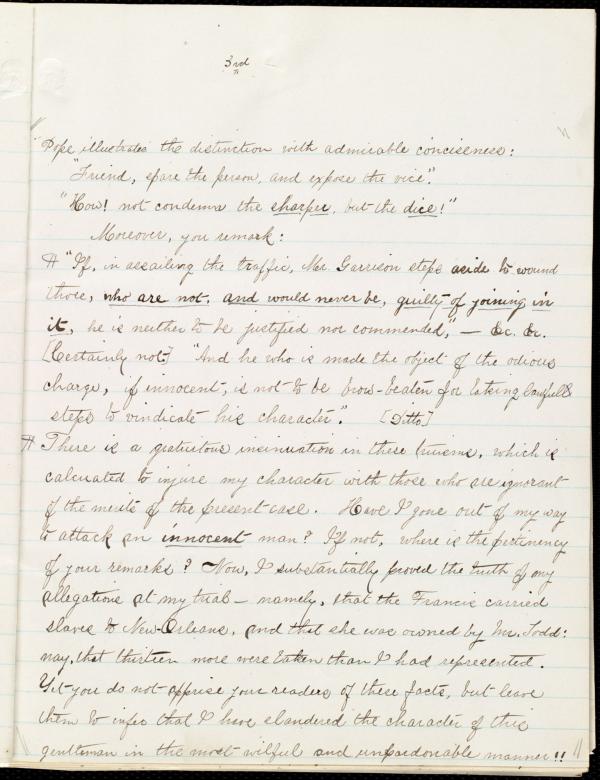 3rd
"
Pope illustrates the distinction with admirable conciseness:
"Friend, spare the person, and expose the vice".
"How! not condemn the sharper, but the dice!"
Moreover, you remark:
"If, in assailing the traffic, Mr. Garrison steps aside to wound
those, who are not, and would never be, guilty of joining in
it, he is neither to be justified nor commended," — &c. &c.
[Certainly not] "And he who is made the object of the odious
charge, if innocent, is not to be brow-beaten for taking lawful
steps to vindicate his character". [Ditto]
There is a gratuitous insinuation in these truisms, which is
calculated to injure my character with those who are ignorant
of the merits of the present case. Have I gone out of my way
to attack an innocent man? If not, where is the pertinency
of your remarks? Now, I substantially proved the truth of my
allegations at my trial — namely, that the Francis carried
slaves to New-Orleans, and that she was owned by Mr. Todd:
nay, that thirteen more were taken than I had represented.
Yet you do not apprise your readers of these facts, but leave
them to infer that I have slandered the character of this
gentleman in the most wilful and unpardonable manner!!